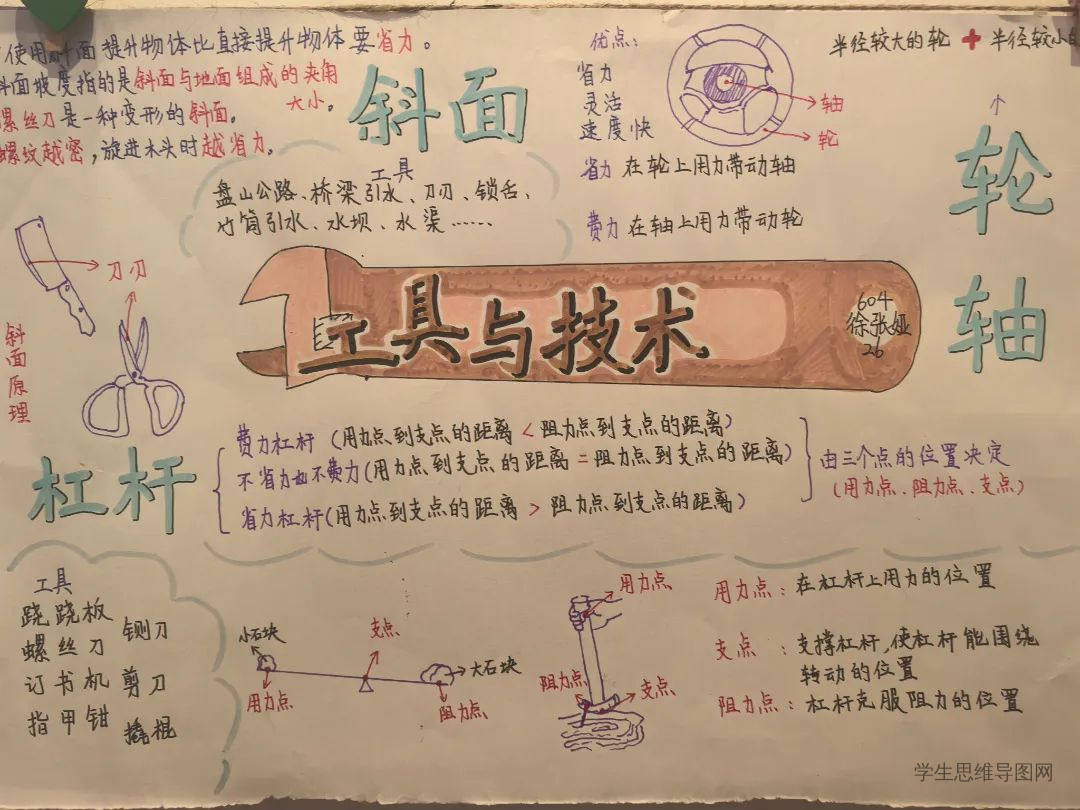 使用斜面提升物体比直接提升物体要省力。
斜面坡度指的是斜面与地面组成的夹角
大小。
螺丝刀是一种变形的斜面。
螺纹越密,旋进木头时越省力。
斜面
工具
盘山公路、桥梁引水、刀刃、锁舌、
竹筒引水、水坝、水渠……
优点:
省力
灵活
速度快
轴
轮
省力 在轮上用力带动轴
费力 在轴上用力带动轮
半径较大的轮 + 半径较小的
↑
轮
轴
刀刃
斜面原理
工具与技术
604
徐张娅
26
杠杆
费力杠杆(用力点到支点的距离<阻力点到支点的距离)
不省力也不费力(用力点到支点的距离=阻力点到支点的距离)
省力杠杆(用力点到支点的距离>阻力点到支点的距离)
由三个点的位置决定
(用力点、阻力点、支点)
工具
跷跷板
螺丝刀 铡刀
订书机 剪刀
指甲钳 撬棍
小石块
支点
大石块
用力点
阻力点
用力点
阻力点
支点
用力点:在杠杆上用力的位置
支点:支撑杠杆,使杠杆能围绕
转动的位置
阻力点:杠杆克服阻力的位置
学生思维导图网